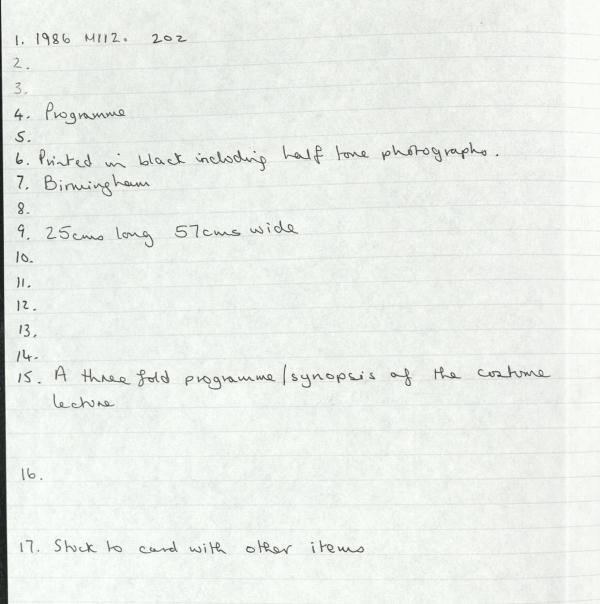 1. 1986 M112. 202
2.
3.
4. Programme
5.
6. Printed in black including half tone photographs.
7. Birmingham
8.
9. 25cms long 57cms wide
10.
11.
12.
13.
14.
15. A three fold programme/synopsis of the costume
lecture
16.
17. Stuck to card with other items